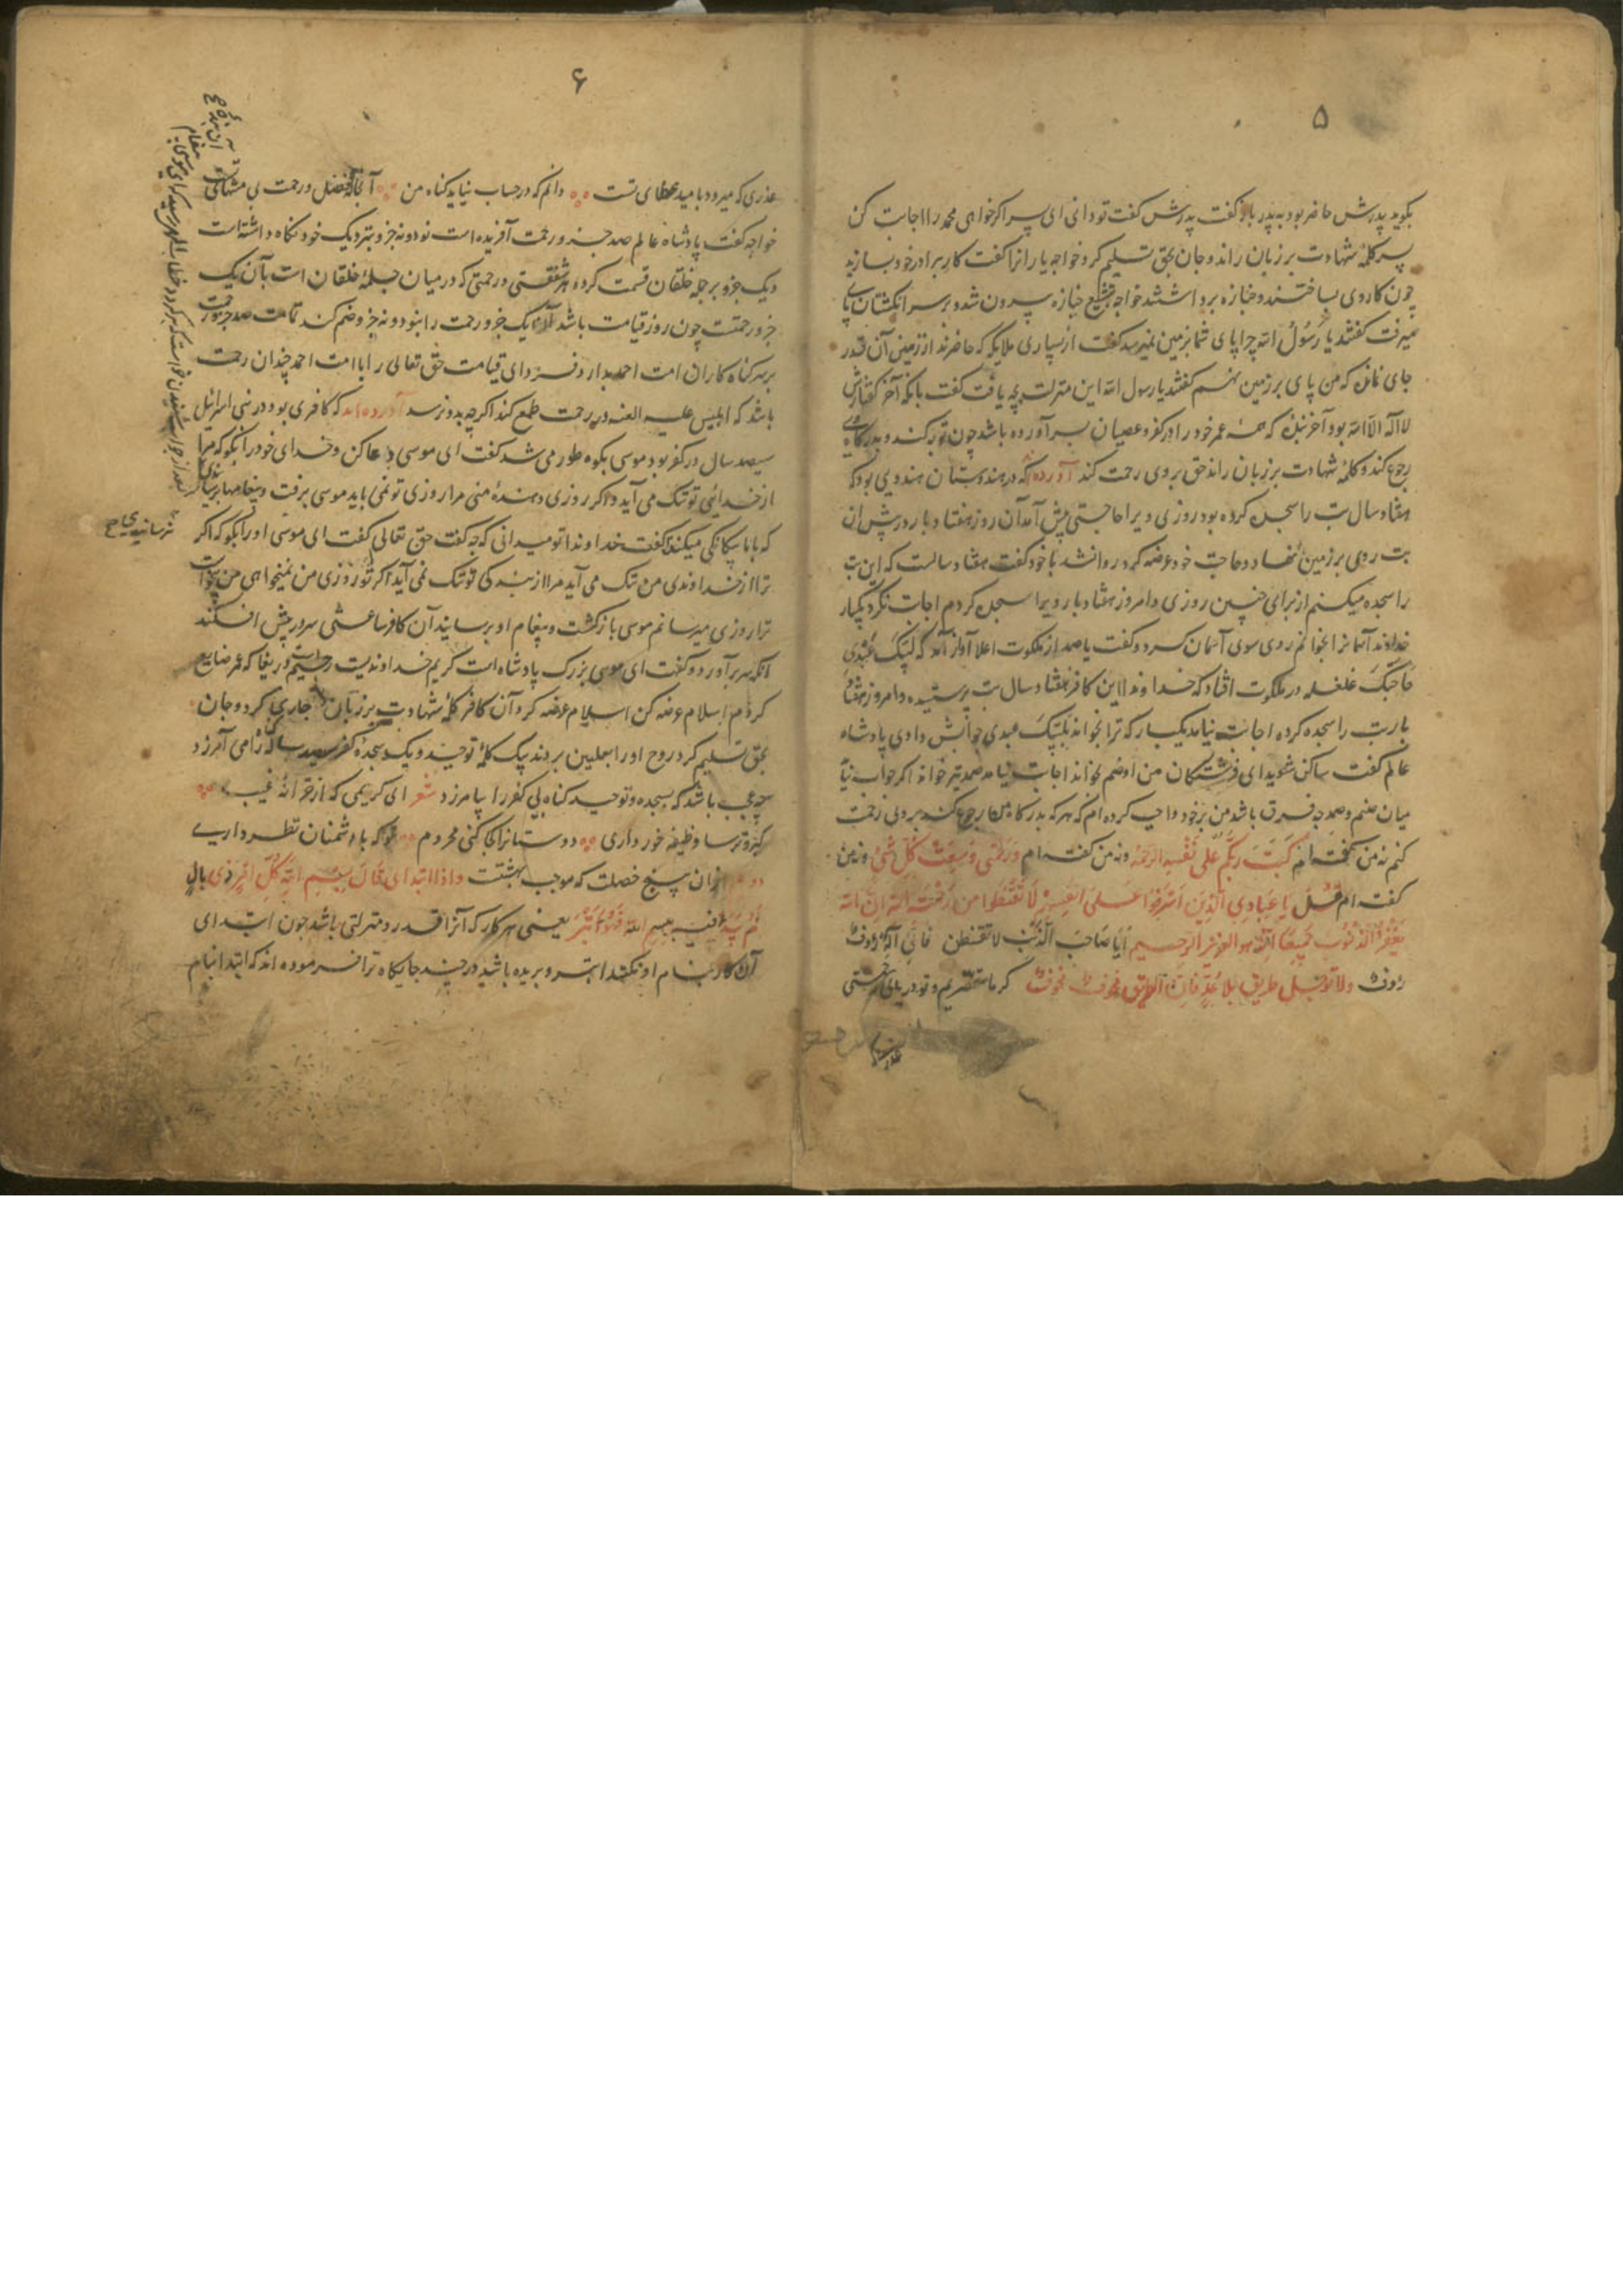 ۵
بگوید پدرش حاضر بود به پدر باز گفت پدرش گفت تو دانی ای پسر اگر خواهی محمد را اجابت کن
پسر کلمۀ شهادت بر زبان راند و جان بحق تسلیم کرد خواجه یارانرا گفت کار برادر خود بسازید
چون کار وی بساختند و جنازه برداشتند خواجه بتشییع جنازه بیرون شد و بر سر انگشتان پای
میرفت گفتند یا رسول الله چرا پای شما بزمین نمیرسد گفت از بسیاری ملایکه که حاضرند از زمین آن قدر
جای نماند که من پای بر زمین نهم گفتند یا رسول الله این منزلت بچه یافت گفت بآنکه آخر گفتارش
لا اله الا الله بود آخر بندۀ که همه عمر خود را در کفر و عصیان بسر آورده باشد چون توبه کند و بدرگاه وی
رجوع کند و کلمۀ شهادت بر زبان راند حق بر وی رحمت کند آورده اند که در هندوستان هندویی بود که
هفتاد سال بت را سجده کرده بود روزی ویرا حاجتی پیش آمد آن روز هفتاد بار در پیش آن
بت روی بر زمین نهاد و حاجت خود عرضه کرد روا نشد با خود گفت هفتاد سالست که این بت
را سجده میکنم از برای چنین روزی و امروز هفتاد بار ویرا سجده کردم اجابت نکرد یکبار
خداوند آسمانرا بخوانم روی سوی آسمان کرد و گفت یا صمد از ملکوت اعلا آواز آمد که لبیک عبدی
حاجتک غلغله در ملکوت افتاد که خداوندا این کافر هفتاد سال بت پرستیده و امروز هفتاد
بار بت را سجده کرده اجابت نیامد یکبار که ترا بخواند بلبیک عبدی جوابش دادی پادشاه
عالم گفت ساکن شوید ای فرشتگان من او صنم بخواند اجابت نیامد صمد نیز خواند اگر جواب نیاید
میان صنم و صمد چه فرق باشد من بر خود واجب کرده ام که هر که بدرگاه ما رجوع کند بر وی رحمت
کنم نه من گفته ام کتب ربکم علی نفسه الرحمة و نه من گفته ام و رحمتی وسعت کل شیء و نه من
گفته ام قل یا عبادی الذین اسرفوا علی انفسهم لا تقنطوا من رحمة الله ان الله
یغفر الذنوب جمیعا انه هو الغفور الرحیم ایا صاحب الذنب لا تقنطن فان الاله رؤف
رؤف ولا ترحل طریق بلا عدة فان الطریق مخوف مخوف گر ما مقصریم و تو دریای رحمتی
عذری
۶
عذری که میرود بامید عطای تست دانم که در حساب نیاید گناه من آنجا که فضل و رحمت بی منتهای تست
خواجه گفت پادشاه عالم صد جزو رحمت آفریده است نود و نه جزو بنزدیک خود نگاه داشته است
و یک جزو بر جمله خلقان قسمت کرده هر شفقتی و رحمتی که در میان جملۀ خلقان است بآن یک
جزو رحمتست چون روز قیامت باشد آن یک جزو رحمت را بنود و نه جزو ضم کند تا رحمت صد جزو
بر سر گناه کاران امت احمد بارد فردای قیامت حق تعالی را با امت احمد چندان رحمت
باشد که ابلیس علیه اللعنه در رحمت طمع کند اگرچه بدو نرسد آورده اند که کافری بود در بنی اسرائیل
سیصد سال در کفر بود موسی بکوه طور می شد گفت ای موسی دعا کن و خدای خود را بگو که مرا
از خدائی تو ننگ می آید و اگر روزی دهندۀ منی مرا روزی تو نمی باید موسی برفت و پیغامها برساند
که با ما بیگانگی میکند گفت خداوندا تو میدانی که چه گفت حق تعالی گفت ای موسی او را بگو که اگر
ترا از خداوندی من ننگ می آید مرا از بندگی تو ننگ نمی آید اگر تو روزی من نمیخواهی من بیخواست
ترا روزی میرسانم موسی بازگشت و پیغام او برسانید آن کافر ساعتی سر در پیش افکند
آنگه سر برآورد و گفت ای موسی بزرگ پادشاه است کریم خداوندیست رحیم دریغا که عمر ضایع
کردم اسلام عرضه کن اسلام عرضه کرد آن کافر کلمۀ شهادت بر زبان جاری کرد و جان
بحق تسلیم کرد روح او را بعلیین بردند بیک کلمۀ توحید و یک سجده کفر سیصد ساله را می آمرزد
چه عجب باشد که بسجده و توحید گناه بی کفر را بیامرزد شعر ای کریمی که از خزانۀ غیب
گبر و ترسا وظیفه خور داری دوستانرا کجا کنی محروم تو که با دشمنان نظر داری
دوم از ان پنج خصلت که موجب بهشتست و اذا ابتدای قال بسم الله کل امر ذی بال
لم یبدأ فیه ببسم الله فهو ابتر یعنی هر کار که آنرا قدر و منزلتی باشد چون ابتدای
آن کار بنام او نکنند ابتر و بریده باشد در چند جایگاه ترا فرموده اند که ابتدا بنام